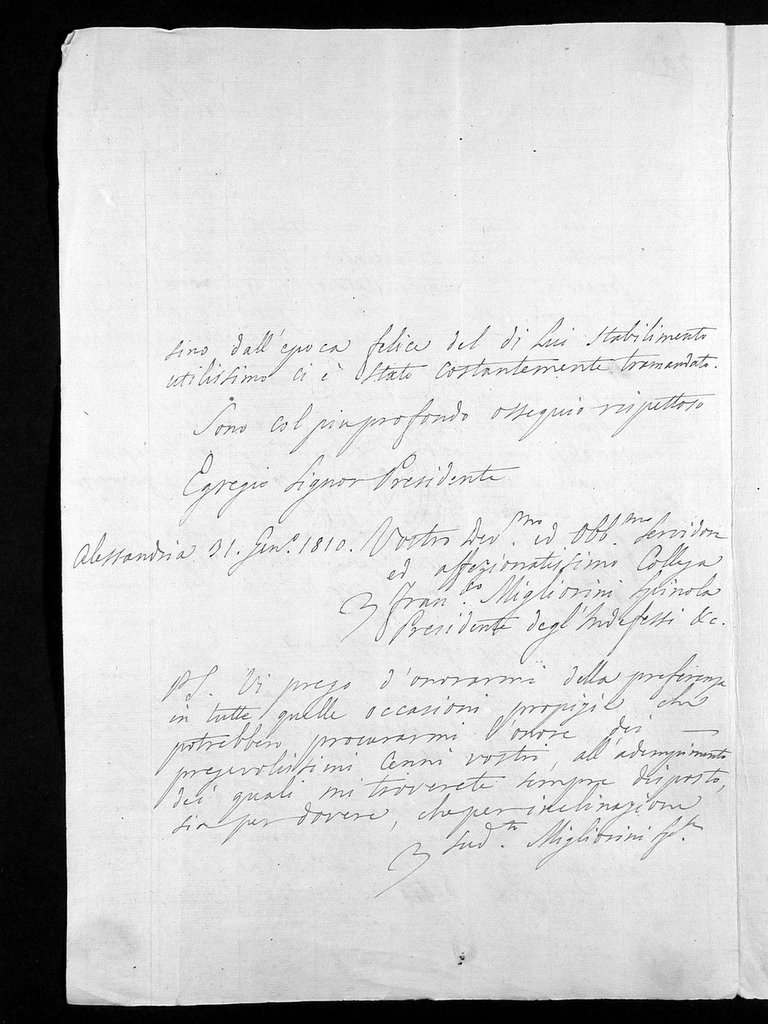 sino dall'epoca felice del di Lui stabilimento
utilissimo ci è stato costantemente tramandato.
Sono col piu profondo ossequio rispettoso
Egregio Signor Presidente
Alessandria 31. Gen.o 1810. Vostro Dev.mo ed Obb.mo Servidore
ed affezionatissimo Collega
Fran.co Migliorini Spinola
Presidente degl'Indefessi &c.
PS. Vi prego d'onorarmi della preferenza
in tutte quelle occasioni propizie che
potrebbero procurarmi l'onore dei
pregevolissimi Cenni vostri, all'adempimento
dei quali mi troverete sempre disposto,
sia per dovere, che per inclinazione
Migliorini